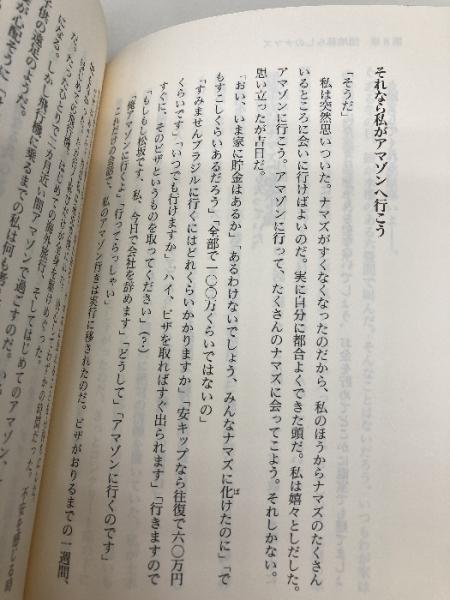 それなら私がアマゾンへ行こう
「そうだ」
私は突然思いついた。ナマズがすくなくなったのだから、私のほうからナマズのたくさん
いるところに会いに行けばよいのだ。実に自分に都合よくできた頭だ。私は嬉々としだした。
アマゾンに行こう。アマゾンに行って、たくさんのナマズに会ってこよう。それしかない。
思い立ったが吉日だ。
「おい、いま家に貯金はあるか」「あるわけないでしょう、みんなナマズに化けたのに」「で
もすこしくらいあるだろう」「全部で一〇〇万くらいではないの」
「すみませんブラジルに行くにはどれくらいかかりますか」「安キップなら往復で六〇万円
くらいです」「いつでも行けますか」「ハイ、ビザを取ればすぐ出られます」「行きますので
すぐに、そのビザというものを取ってください」(?)
「もしもし松坂です。私、今日で会社を辞めます」「どうして」「アマゾンに行くのです」
「俺アマゾンに行くよ」「行ってらっしゃい」
これだけの会話で、私のアマゾン行きは実行に移されたのだ。ビザがおりるまでの一週間、
になる。しかし飛行機に乗るまでの私は何も考
子供の遠足のようだ。